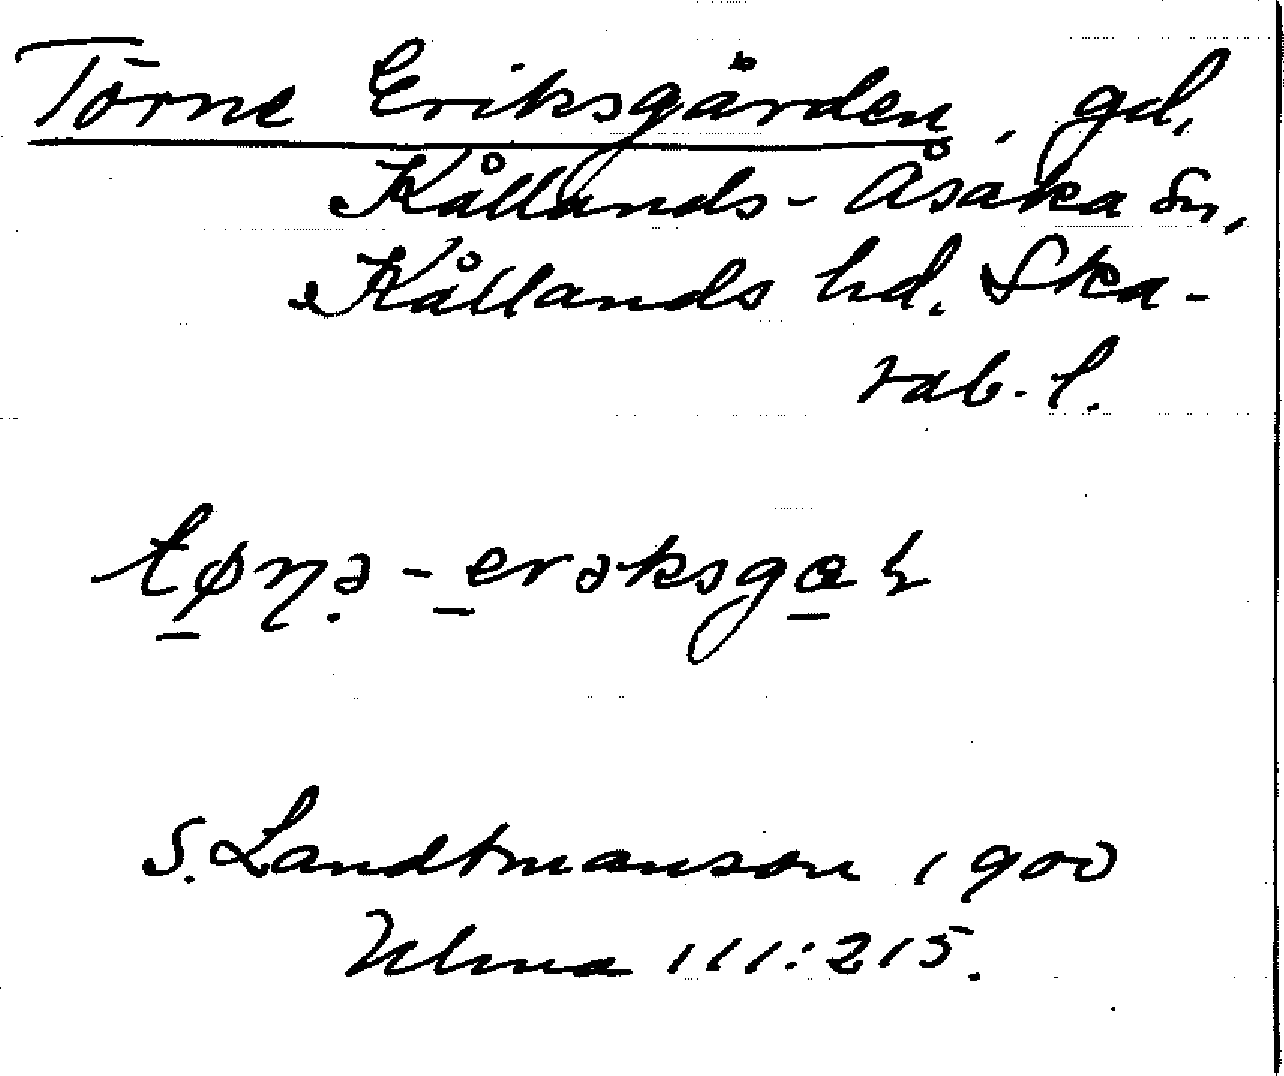 Törne Eriksgården, gd,
Kållands-Åsaka sn,
Kållands hd. Ska-
rab. l.
tøɳə-erəksgɑɽ
S. Landtmanson 1900
Ulma 111:215.